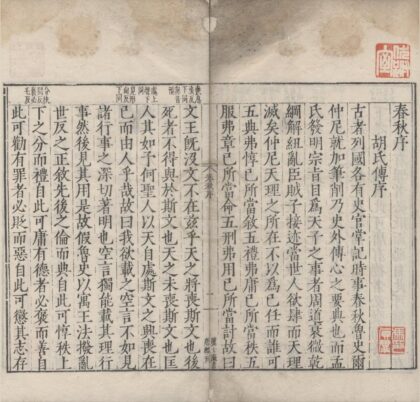 春秋序
胡氏傳序
古者列國各有史官掌記時事春秋魯史爾
仲尼就加筆削乃史外傳心之要典也而孟
氏發明宗旨目爲天子之事者周道衰微乾
綱解紐亂臣賊子接迹當世人欲肆而天理
滅矣仲尼天理之所在不以爲己任而誰可
五典弗惇己所當敘五禮弗庸己所當秩五
服弗章己所當命五刑弗用己所當討故曰
文王旣沒文不在茲乎天之將喪斯文也後
死者不得與於斯文也天之未喪斯文也匡
人其如予何聖人以天自處斯文之興喪在
己而由人乎哉故曰我欲載之空言不如見
諸行事之深切著明也空言獨能載其理行
事然後見其用是故假魯史以寓王法撥亂
世反之正敘先後之倫而典自此可惇秩上
下之分而禮自此可庸有德者必褒而善自
此可勸有罪者必貶而惡自此可懲其志存